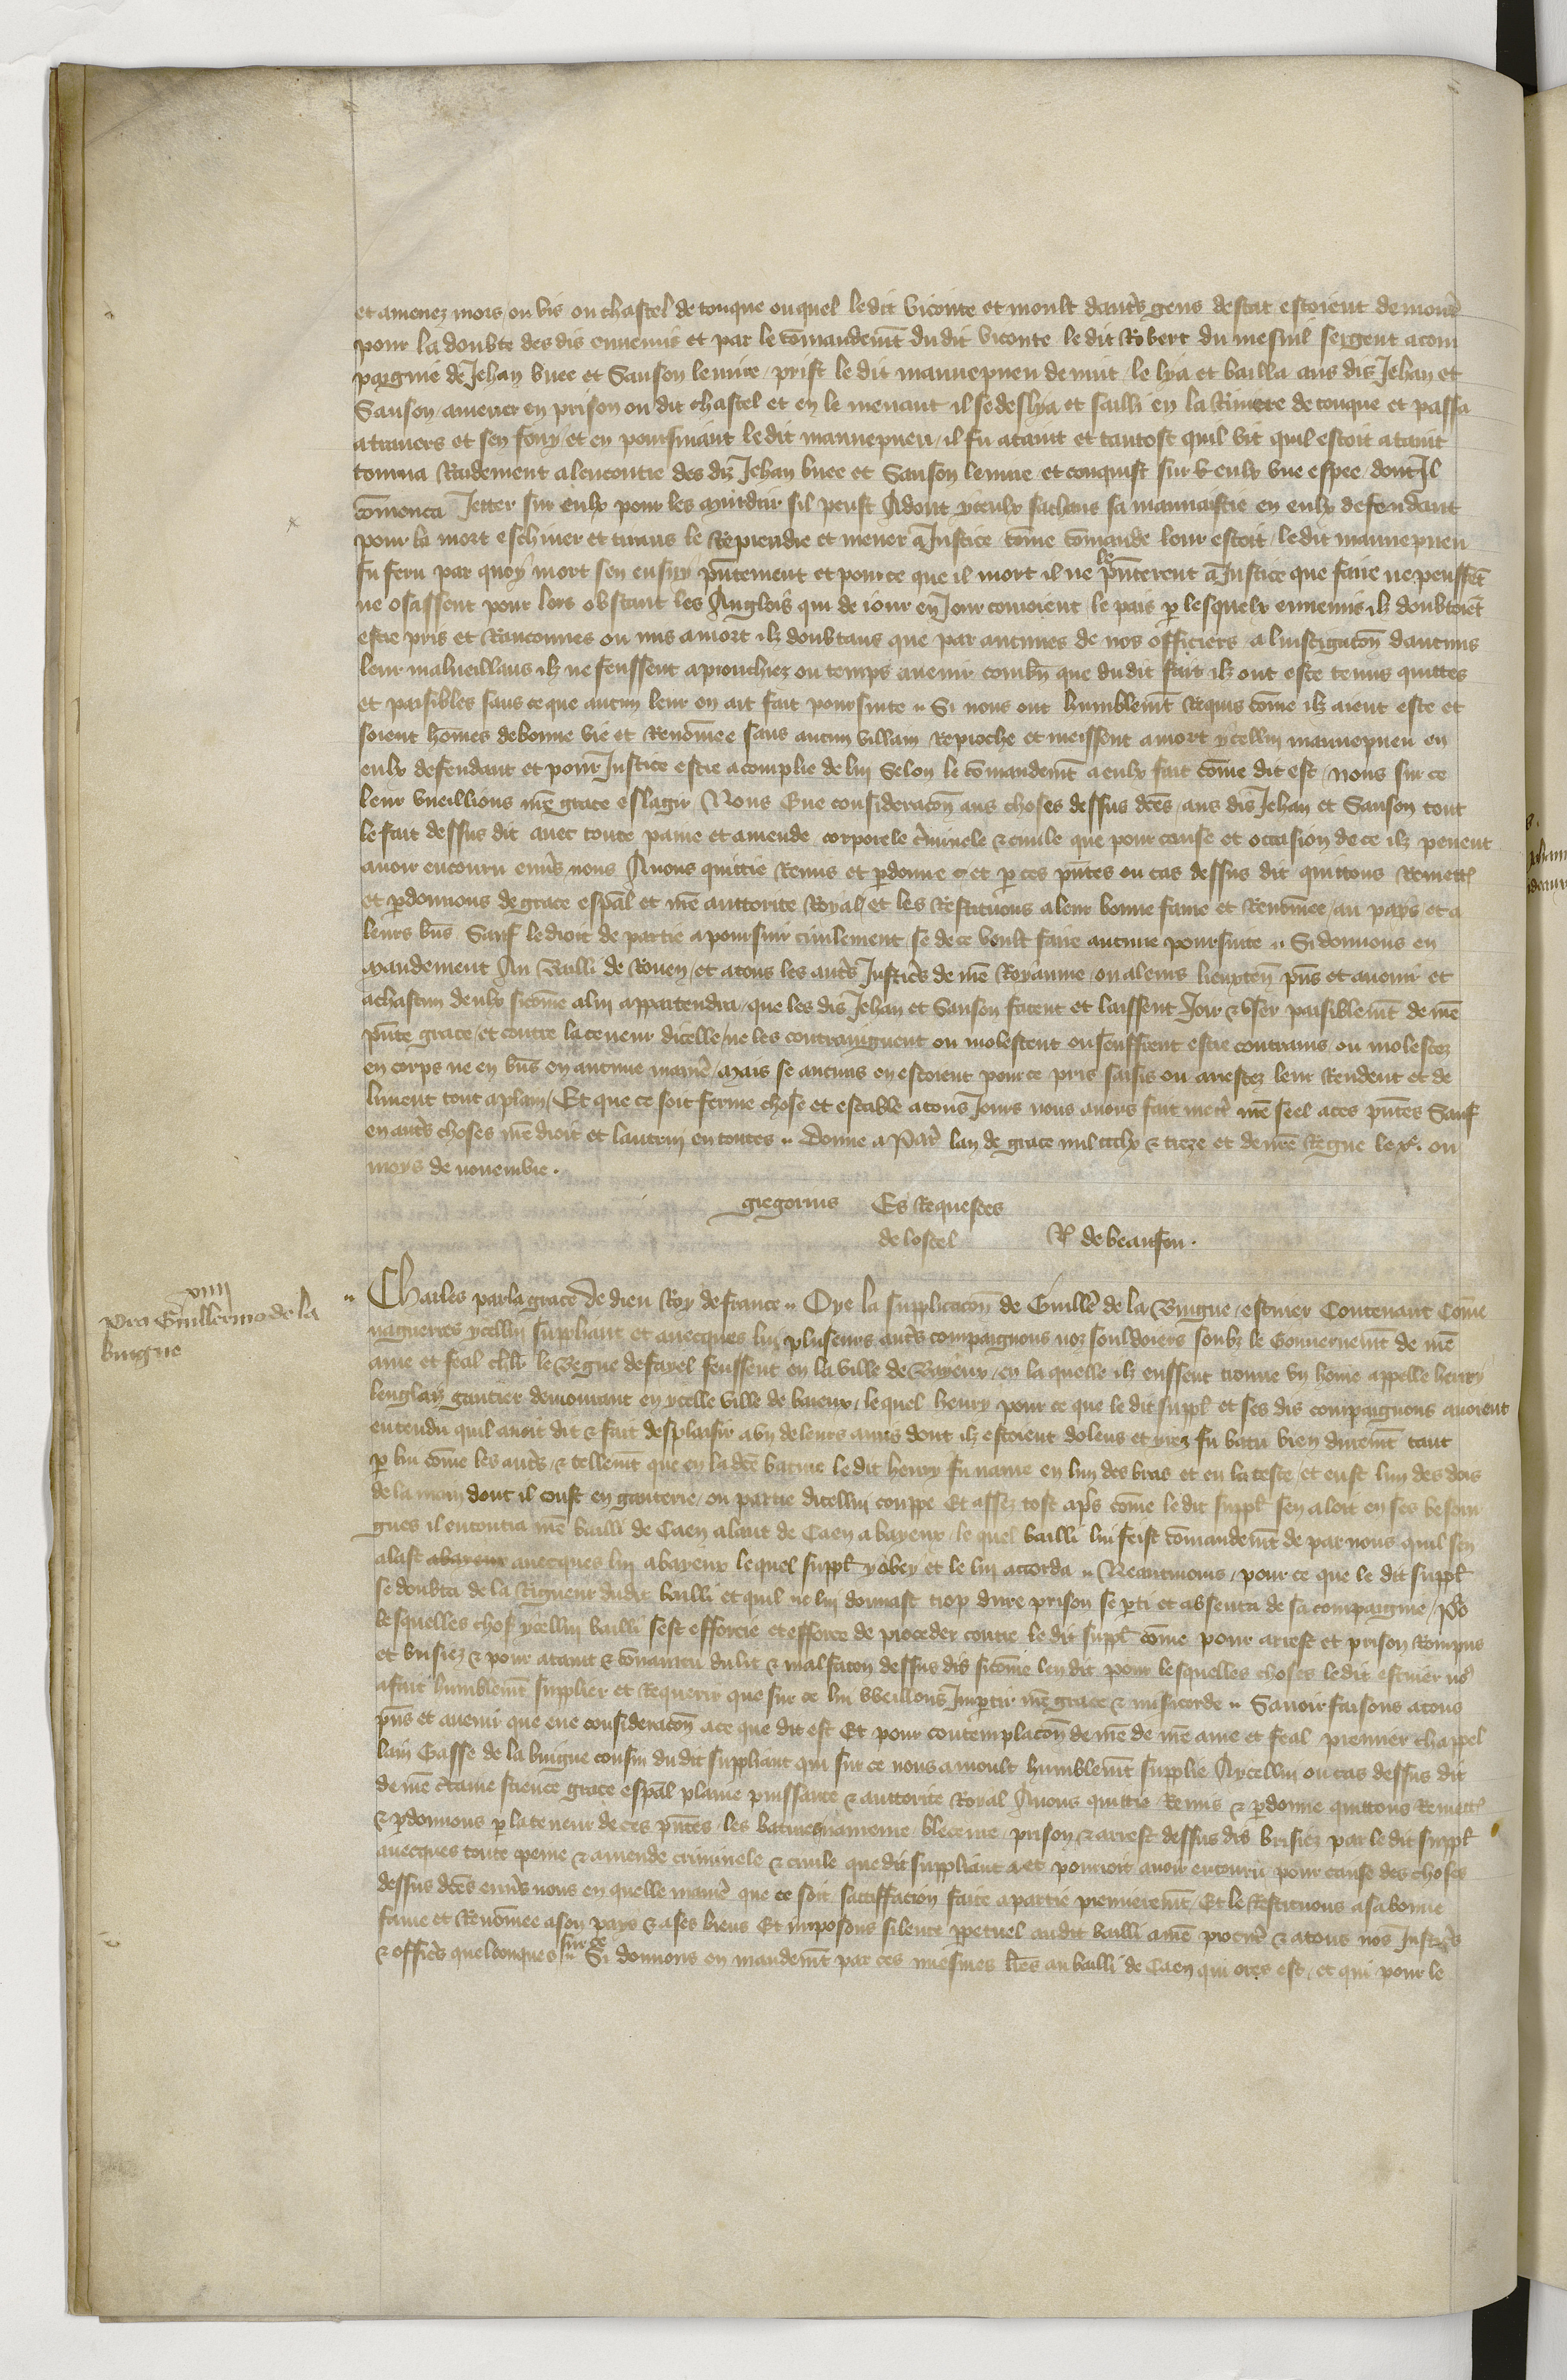 et amenez mors ou vis ou chastel de touque ouquel ledit viconte et moult daut's gens destat estoient demour'
pour la doubte des dis ennemis et par le cōmandemt̄ du dit viconte le dit Robert du mesnil sergent acom
pargnie de Jehan buee et Sanson lenure prist le dit mannepueu de nuit le lya et bailla aus dis Jehan et
Sanson amener en prison ou dit chastel et en le menant il se deslya et sailli en la Riuiere de touque et passa
atrauers et sen fouy et en poursuiant ledit mannepueu il fu ataint et tantost quil vit quil estoit ataint
tourna Rudement alencontre des diz Jehan buee et Sanson lenure et conquist sur eulx vne espee dont Il
cōmenca Jetter sur eulx pour les murdrir sil peust Adont yceulx sachans sa mauuaistie en eulx defendant
pour la mort eschiuer et tirans le Reprendre et mener a Justice cōme cōmande leur estoit ledit mannepueu
fu feru par quoy mort sen ensuy pn̄tement et pour ce que il mort il ne le pn̄terent a Justice que faire ne peussēt
ne osassent pour lors obstant les Anglois qui de iour en Jour couroient le pais p lesquelx ennemis ilz doubtoiēt
estre pris et Ranconnes ou mis amort ilz doubtans que par aucunes de nos officiers a linstigacōn daucuns
leur malueillans ilz ne feussent aprouchiez ou temps auenir combn̄ que du dit fait ilz ont este tenus quittes
et paisibles sans ce que aucun leur en ait fait poursuite Si nous ont humblemt̄ Requis cōme ilz aient este et
soient hōmes de bonne vie et Renōmee sans aucun villain Reproche et meissent amort ycellui mannepueu en
eulx defendant et pour Justice estre acomplie de lui Selon le cōmandemt̄ a eulx fait cōme dit est nous sur ce
leur vueillions nrē grace eslagir Nous Eue consideracōn aus choses dessus dc̄es aus dis Jehan et Sanson tout
le fait dessus dit auec toute paine et amende corporele c'minele & ciuile que pour cause et occasion de ce ilz peuent
auoir encouru enu's nous Auons quittie Remis et pdonne et p ces pn̄tes ou cas dessus dit quittons Remett'
et pdonnons de grace esp̄al et nrē auttorite Royal et les Restituons a leur bonne fame et Renōmee au pays et a
leurs bn̄s Sauf le droit de partie a poursuir ciuilement se de ce voult faire aucune poursuite Si donnons en
mandement Au Bailli de Rouen et atous les aut's Justic's de nrē Royaume ou a leurs lieuxten̄ pn̄s et auenir et
achascun deulx sicōme alui appartendra que les dis Jehan et Sanson facent et laissent Joir & vser paisiblemt̄ de nrē
pn̄te grace et contre la teneur dicelle ne les contraingnent ou molestent ou seuffrent estre contrains ou molestez
en corps ne en bn̄s en aucune manie' mais se aucuns en estoient pour ce pris saisis ou arrestez leur Rendent et de
liurent tout aplain Et que ce soit ferme chose et estable atous Jours nous auons fait mett' nrē seel a ces pn̄tes Sauf
en aut's choses nrē droit et lautrui en toutes Donne a Par' lan de grace mil ccclx & treze et de nrē Regne le xe. ou
mois de nouembre.
gregorius Es Requestes
de lostel R de beaufou.
viiii
Pro Guillermo de la
buigne
Charles par la grace de dieu Roy de france Oye la supplicacōn de Guillē de la Buigne escuier Contenant Cōme
nagueres ycellui suppliant et auecques lui pluseurs aut's compaignons noz souldoiers soubz le Gouuernemt̄ de nrē
ame et feal chl̄r le Begue de fayel feussent en la ville de Bayeux en la quelle ilz eussent trouue vn home appelle henry
lenglais gantier demourant en ycelle ville de baieux lequel henry pour ce que le dit suppl' et ses dis compaignons auoient
entendu quil auoit dit & fait desplaisir a vn de leurs amis dont ilz estoient dolens et yrez fu batu bien duremt̄ tant
p lui cōme les aut's & tellemt̄ que en la dc̄e bature le dit henry fu naure en lun des bras et en la teste et eust lun des dois
de la main dont il coust en ganterie ou partie dicellui couppe Et assez tost ap's cōme le dit suppl' sen aloit en ses besoin
gnes il encontra nrē bailli de Caen alant de Caen a bayeux le quel bailli lui feist cōmandemt̄ de par nous quil sen
alast abayeux auecques lui abayeux lequel suppl' y obey et le lui accorda Neantmoins pour ce que le dit suppl'
se doubta de la Rigueur dudit bailli et quil ne lui donnast trop dure prison se pti et absenta de sa compaignie Po'
lesquelles chos' ycellui bailli sest efforcie et efforce de proceder contre le dit suppl' cōme pour arrest et prison Rompus
et brisiez & pour ataint & conuaincu du lit & malfacon dessus dis sicōme len dit pour lesquelles choses ledit escuier no'
a fait humblemt̄ supplier et Requerir que sur ce lui vveillons Impartir nrē grace & misicorde Sauoir faisons a tous
pn̄s et auenir que eue consideracōn ace que dit est Et pour contemplacōn de nrē de nrē ame et feal premier chappel
lain Gasse de la buigne cousin du dit suppliant qui sur ce nous a moult humblemt̄ supplie Aycellui ou cas dessus dit
de nrē c'taine science grace esp̄al plaine puissance & auttorite Royal Auons quittie Remis & pdonne quittons Remett'
& pdonnons p la teneur de ces pn̄tes les batures naureure bleceure prison & arrest dessus dis brisiez par le dit suppl'
auecques toute peine & amende criminele & ciuile que dit suppliant a et pourroit auoir encouru pour cause des choses
dessus dc̄es enu's nous en quelle manie' que ce soit satiffacion faite a partie premieremt̄ Et le Restituons a sa bonne
fame et Renōmee a son pays & a ses biens Et imposons silence ppetuel audit bailli a nrē procur' & a tous nos Justic's
& offic's quelconques sur ce Si donnons en mandemt̄ par ces mesmes lr̄es au bailli de Caen qui ores est et qui pour le